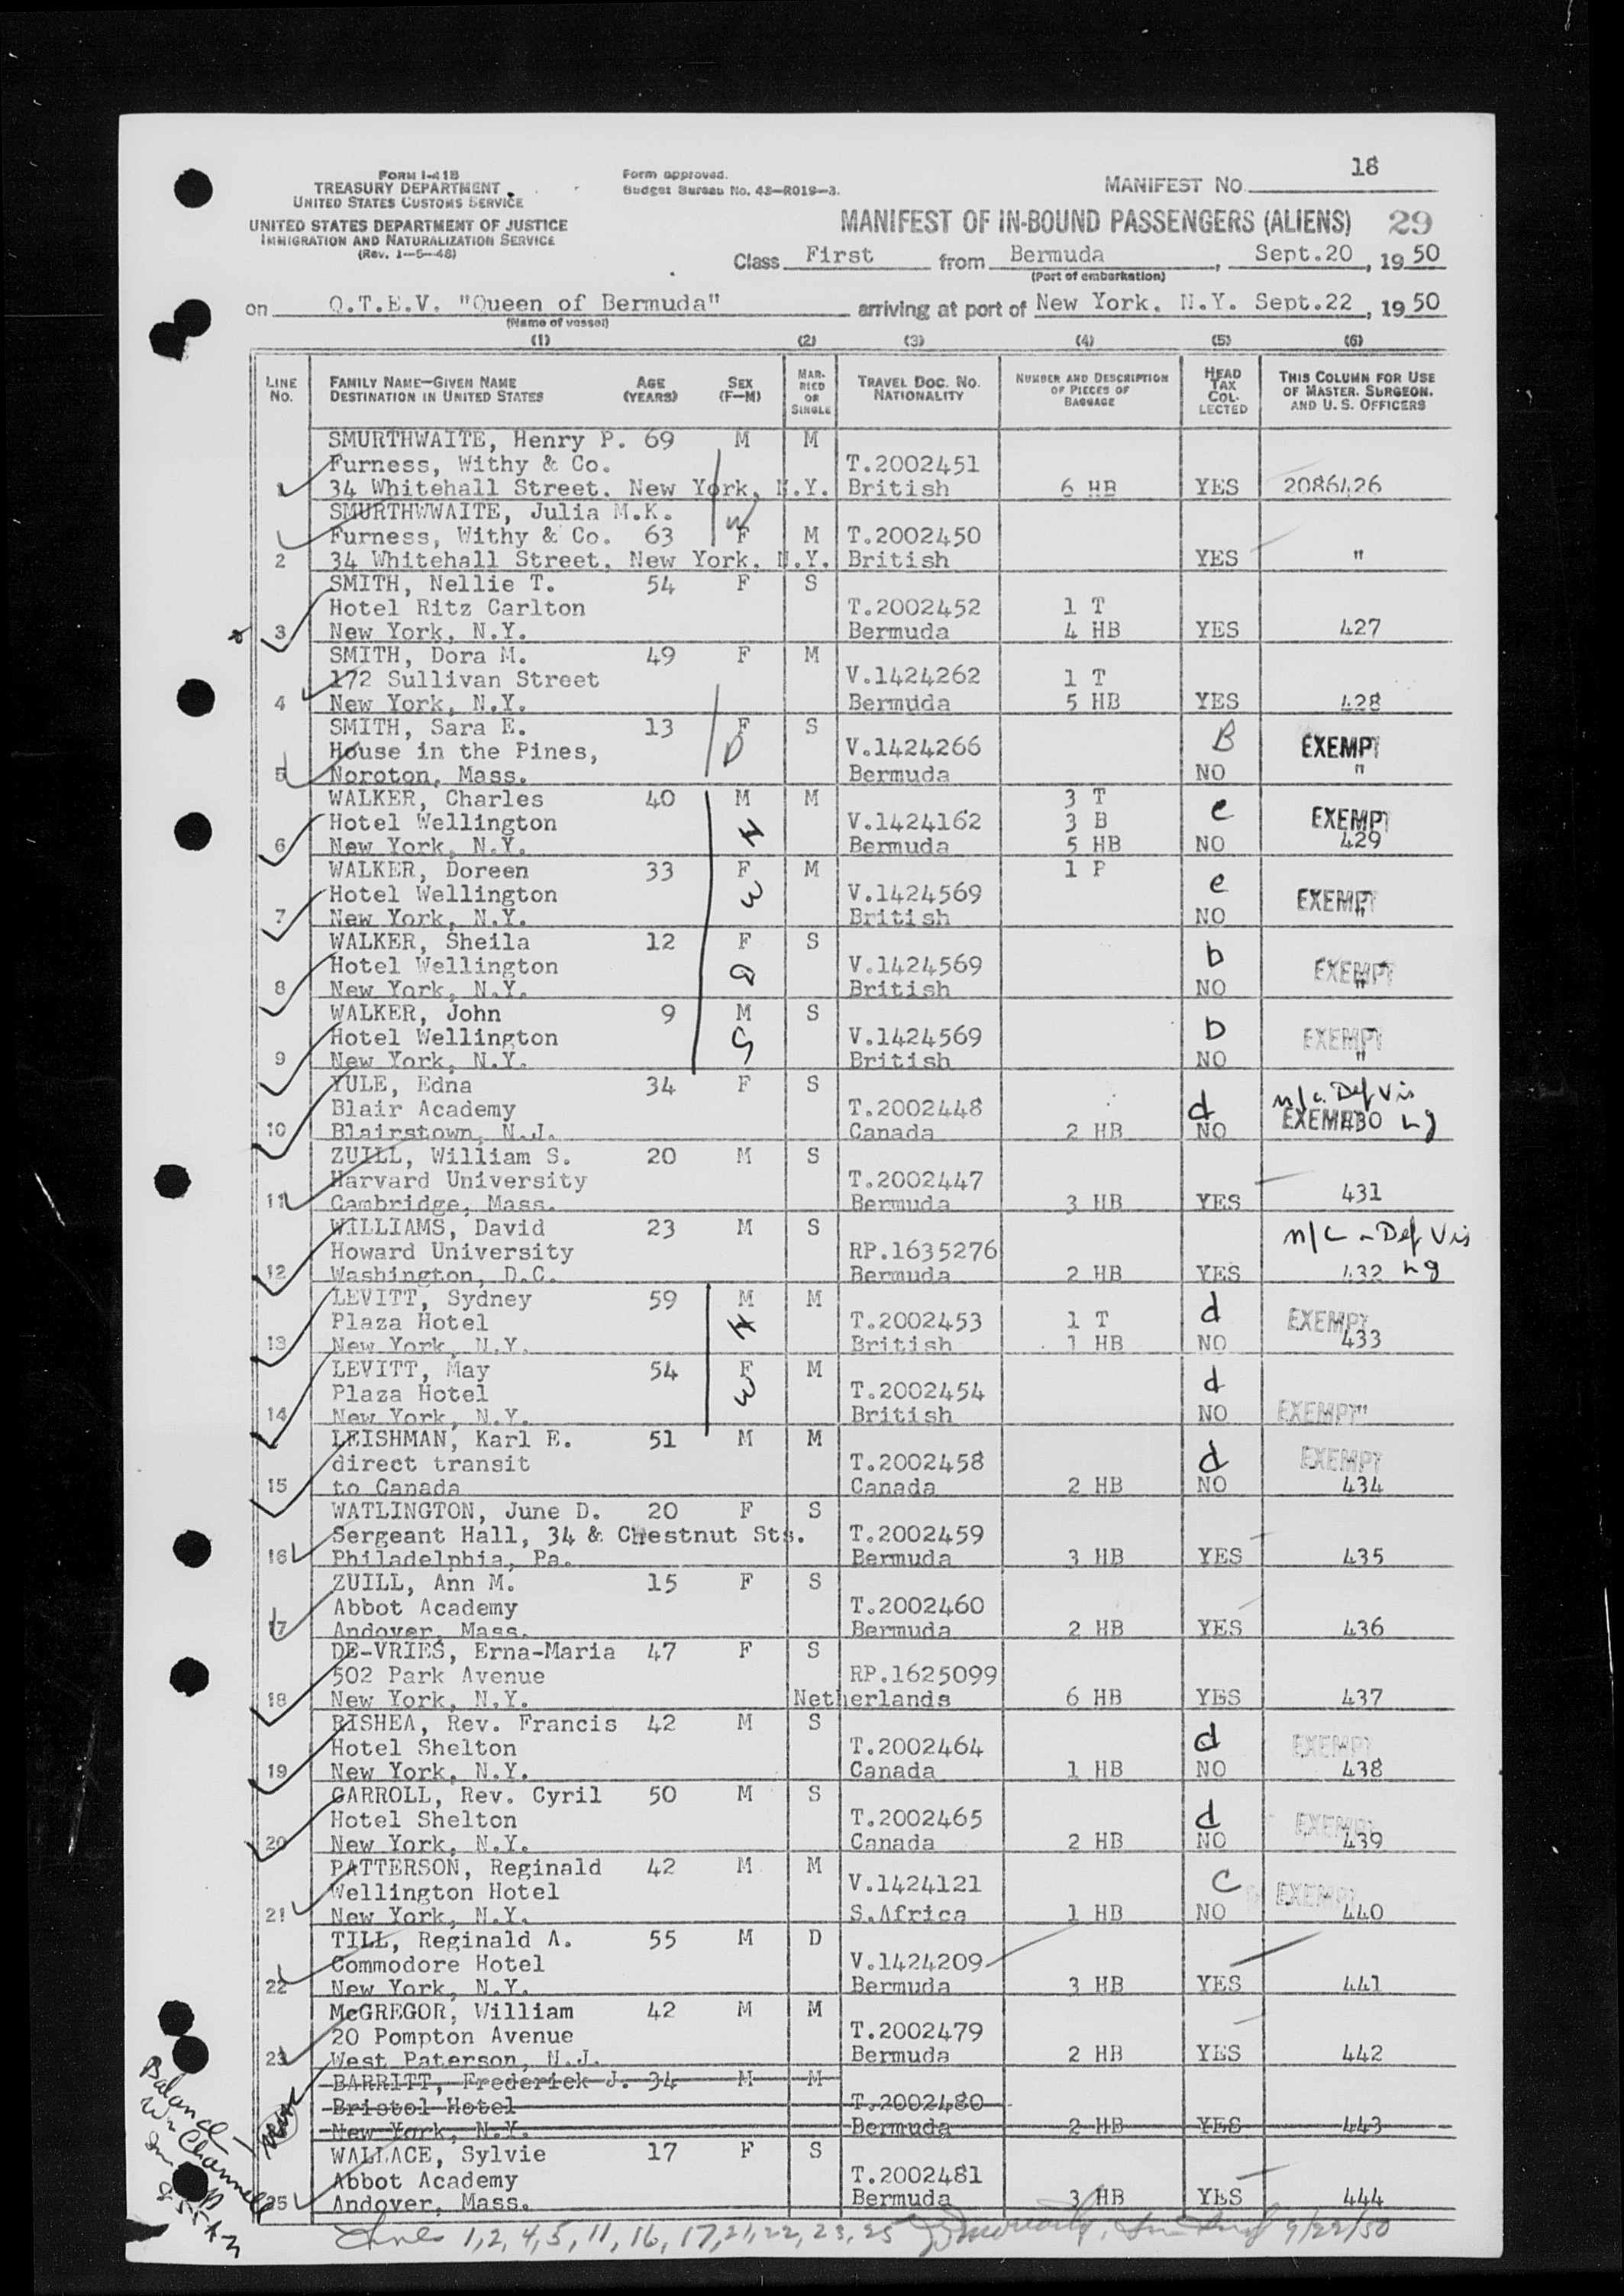 FORM I-418
TREASURY DEPARTMENT
UNITED STATES CUSTOMS SERVICE
UNITED STATES DEPARTMENT OF JUSTICE
IMMIGRATION AND NATURALIZATION SERVICE
(Rev. 1-5-48)
Form approved.
Budget Bureau No. 43-R019-3.
MANIFEST NO. 18
MANIFEST OF IN-BOUND PASSENGERS (ALIENS) 29
Class First from Bermuda, Sept.20, 1950
(Port of embarkation)
on Q.T.E.V. "Queen of Bermuda" arriving at port of New York. N.Y. Sept.22, 1950
(Name of vessel)
(1) (2) (3) (4) (5) (6)
LINE No. FAMILY NAME—GIVEN NAME DESTINATION IN UNITED STATES AGE (YEARS) SEX (F—M) MARRIED OR SINGLE TRAVEL DOC. NO. NATIONALITY NUMBER AND DESCRIPTION OF PIECES OF BAGGAGE HEAD TAX COLLECTED THIS COLUMN FOR USE OF MASTER, SURGEON, AND U. S. OFFICERS
SMURTHWAITE, Henry P. 69 M M
Furness, Withy & Co. T.2002451
1 34 Whitehall Street. New York, N.Y. British 6 HB YES 2086426
SMURTHWWAITE, Julia M.K. W
Furness, Withy & Co. 63 F M T.2002450
2 34 Whitehall Street, New York, N.Y. British YES "
SMITH, Nellie T. 54 F S
Hotel Ritz Carlton T.2002452 1 T
3 New York, N.Y. Bermuda 4 HB YES 427
SMITH, Dora M. 49 F M
172 Sullivan Street V.1424262 1 T
4 New York, N.Y. Bermuda 5 HB YES 428
SMITH, Sara E. 13 F S B
House in the Pines, D V.1424266 EXEMPT
5 Noroton, Mass. Bermuda NO "
WALKER, Charles 40 M M 3 T e
Hotel Wellington H V.1424162 3 B EXEMPT
6 New York, N.Y. Bermuda 5 HB NO 429
WALKER, Doreen 33 F M 1 P e
Hotel Wellington W V.1424569 EXEMPT
7 New York, N.Y. British NO "
WALKER, Sheila 12 F S b
Hotel Wellington D V.1424569 EXEMPT
8 New York, N.Y. British NO "
WALKER, John 9 M S b
Hotel Wellington S V.1424569 EXEMPT
9 New York, N.Y. British NO "
YULE, Edna 34 F S n/c. Def Vis
Blair Academy T.2002448 d EXEMPT
10 Blairstown, N.J. Canada 2 HB NO 430
ZUILL, William S. 20 M S
Harvard University T.2002447
11 Cambridge, Mass. Bermuda 3 HB YES 431
WILLIAMS, David 23 M S n/c - Def Vis
Howard University RP.1635276
12 Washington, D.C. Bermuda 2 HB YES 432
LEVITT, Sydney 59 M M d
Plaza Hotel H T.2002453 1 T EXEMPT
13 New York, N.Y. British 1 HB NO 433
LEVITT, May 54 F M d
Plaza Hotel W T.2002454
14 New York, N.Y. British NO EXEMPT "
LEISHMAN, Karl E. 51 M M d
direct transit T.2002458 EXEMPT
15 to Canada Canada 2 HB NO 434
WATLINGTON, June D. 20 F S
Sergeant Hall, 34 & Chestnut Sts. T.2002459
16 Philadelphia, Pa. Bermuda 3 HB YES 435
ZUILL, Ann M. 15 F S
Abbot Academy T.2002460
17 Andover, Mass. Bermuda 2 HB YES 436
DE-VRIES, Erna-Maria 47 F S
502 Park Avenue RP.1625099
18 New York, N.Y. Netherlands 6 HB YES 437
RISHEA, Rev. Francis 42 M S d
Hotel Shelton T.2002464 EXEMPT
19 New York, N.Y. Canada 1 HB NO 438
CARROLL, Rev. Cyril 50 M S d
Hotel Shelton T.2002465 EXEMPT
20 New York, N.Y. Canada 2 HB NO 439
PATTERSON, Reginald 42 M M c
Wellington Hotel V.1424121 EXEMPT
21 New York, N.Y. S.Africa 1 HB NO 440
TILL, Reginald A. 55 M D
Commodore Hotel V.1424209
22 New York, N.Y. Bermuda 3 HB YES 441
McGREGOR, William 42 M M
20 Pompton Avenue T.2002479
23 West Paterson, N.J. Bermuda 2 HB YES 442
BARRITT, Frederick J. 34 M M
Bristol Hotel T.2002480
New York, N.Y. Bermuda 2 HB YES 443
WALLACE, Sylvie 17 F S
Abbot Academy T.2002481
25 Andover, Mass. Bermuda 3 HB YES 444
Balance
Lines 1,2,4,5,11,16,17,21,22,23,25 9/22/50